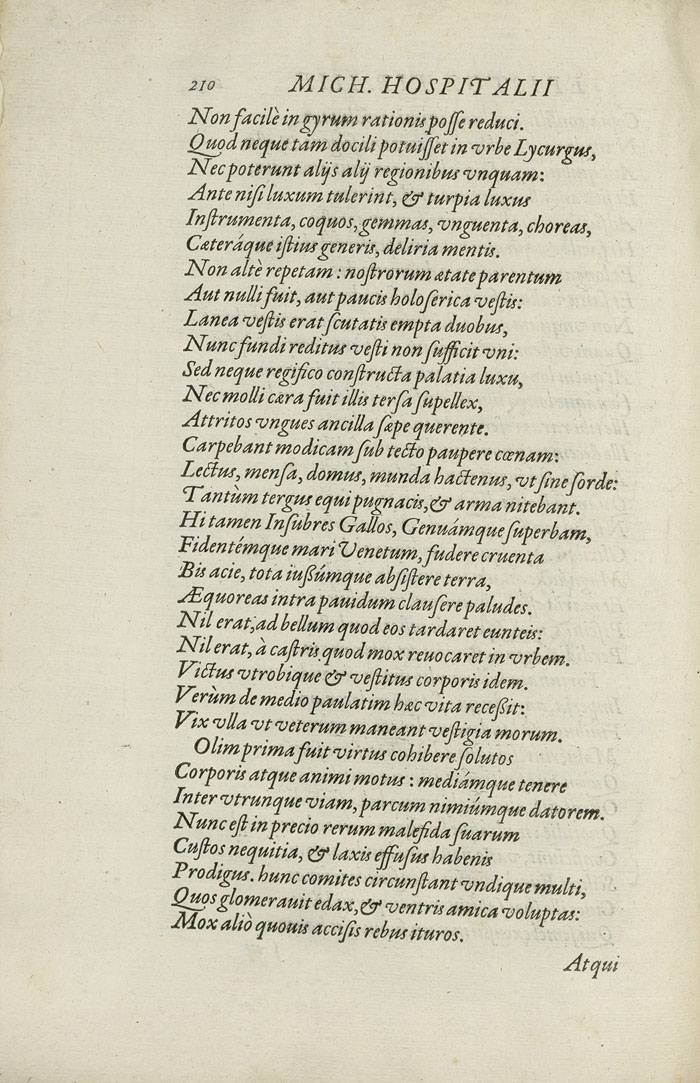 210 MICH. HOSPITALII
Non facilè in gyrum rationis posse reduci.
Quod neque tàm docili potuisset in vrbe Lycurgus,
Nec poterunt alijs alij regionibus vnquam:
Ante nisi luxum tulerint, & turpia luxus
Instrumenta, coquos, gemmas, vnguenta, choreas,
Cæteráque istius generis, deliria mentis.
Non altè repetam: nostrorum ætate parentum
Aut nulli fuit, aut paucis holoserica vestis:
Lanea vestis erat scutatis empta duobus,
Nunc fundi reditus vesti non sufficit vni:
Sed neque regifico constructa palatia luxu,
Nec molli cæra fuit illis tersa supellex,
Attritos vngues ancilla sæpe querente.
Carpebant modicam sub tecto paupere cœnam:
Lectus, mensa, domus, munda hactenus, vt sine sorde:
Tantùm tergus equi pugnacis, & arma nitebant.
Hi tamen Insubres Gallos, Genuámque superbam,
Fidentémque mari Venetum, fudere cruenta
Bis acie, tota iußúmque absistere terra,
Æquoreas intra pauidum clausere paludes.
Nil erat, ad bellum quod eos tardaret eunteis:
Nil erat, à castris quod mox reuocaret in vrbem.
Victus vtrobique & vestitus corporis idem.
Verùm de medio paulatim hæc vita receßit:
Vix vlla vt veterum maneant vestigia morum.
Olim prima fuit virtus cohibere solutos
Corporis atque animi motus: mediámque tenere
Inter vtrunque viam, parcum nimiúmque datorem.
Nunc est in precio rerum malefida suarum
Custos nequitia, & laxis effusus habenis
Prodigus. hunc comites circunstant vndique multi,
Quos glomerauit edax, & ventris amica voluptas:
Mox aliò quouis accisis rebus ituros.
Atqui